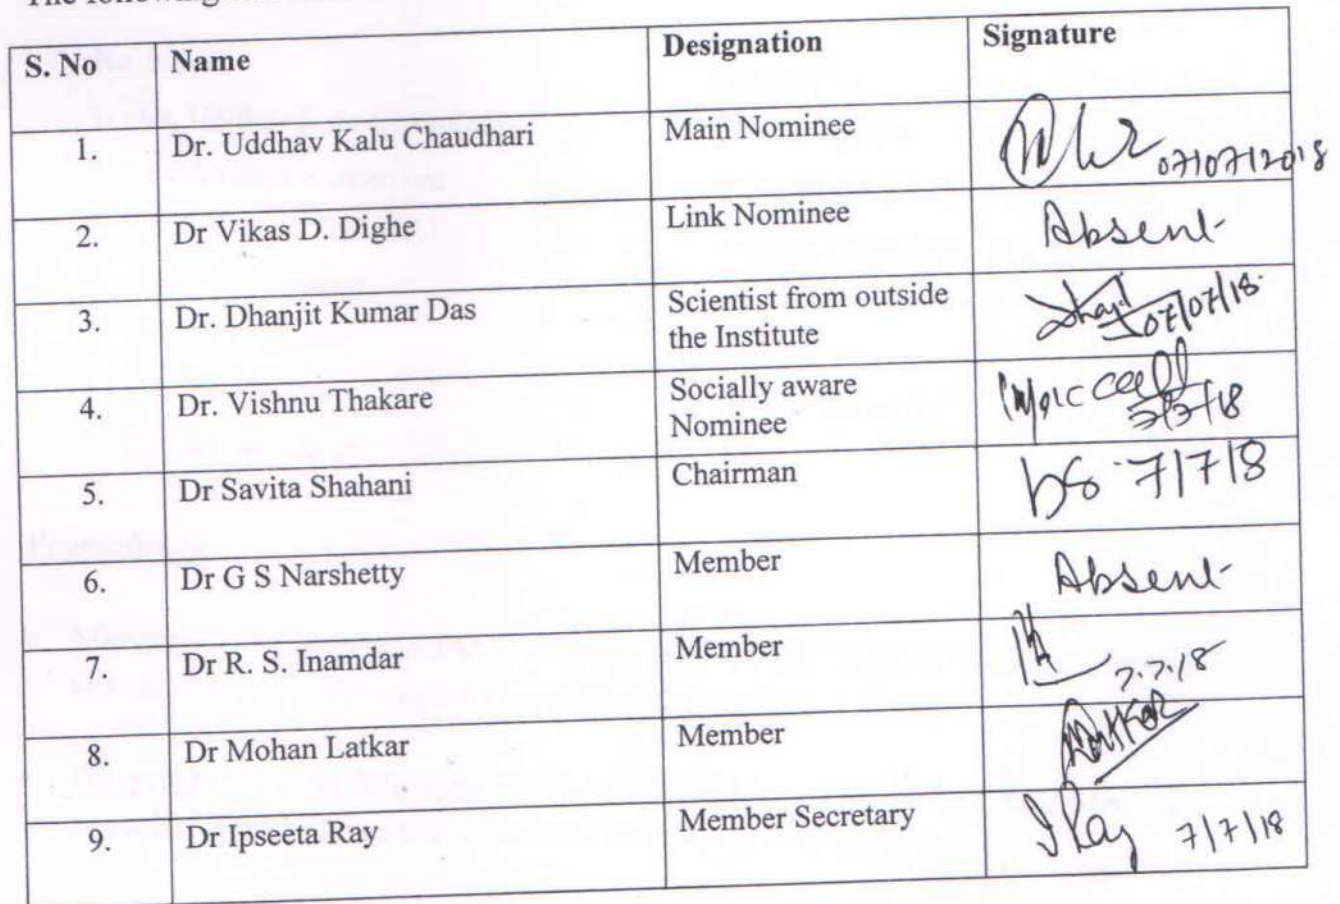 The following
S. No Name Designation Signature
1. Dr. Uddhav Kalu Chaudhari Main Nominee 07/07/2018
2. Dr Vikas D. Dighe Link Nominee Absent
3. Dr. Dhanjit Kumar Das Scientist from outside
the Institute 07/07/18
4. Dr. Vishnu Thakare Socially aware
Nominee 7/7/18
5. Dr Savita Shahani Chairman 7/7/18
6. Dr G S Narshetty Member Absent
7. Dr R. S. Inamdar Member 7.7.18
8. Dr Mohan Latkar Member
9. Dr Ipseeta Ray Member Secretary IRay 7/7/18